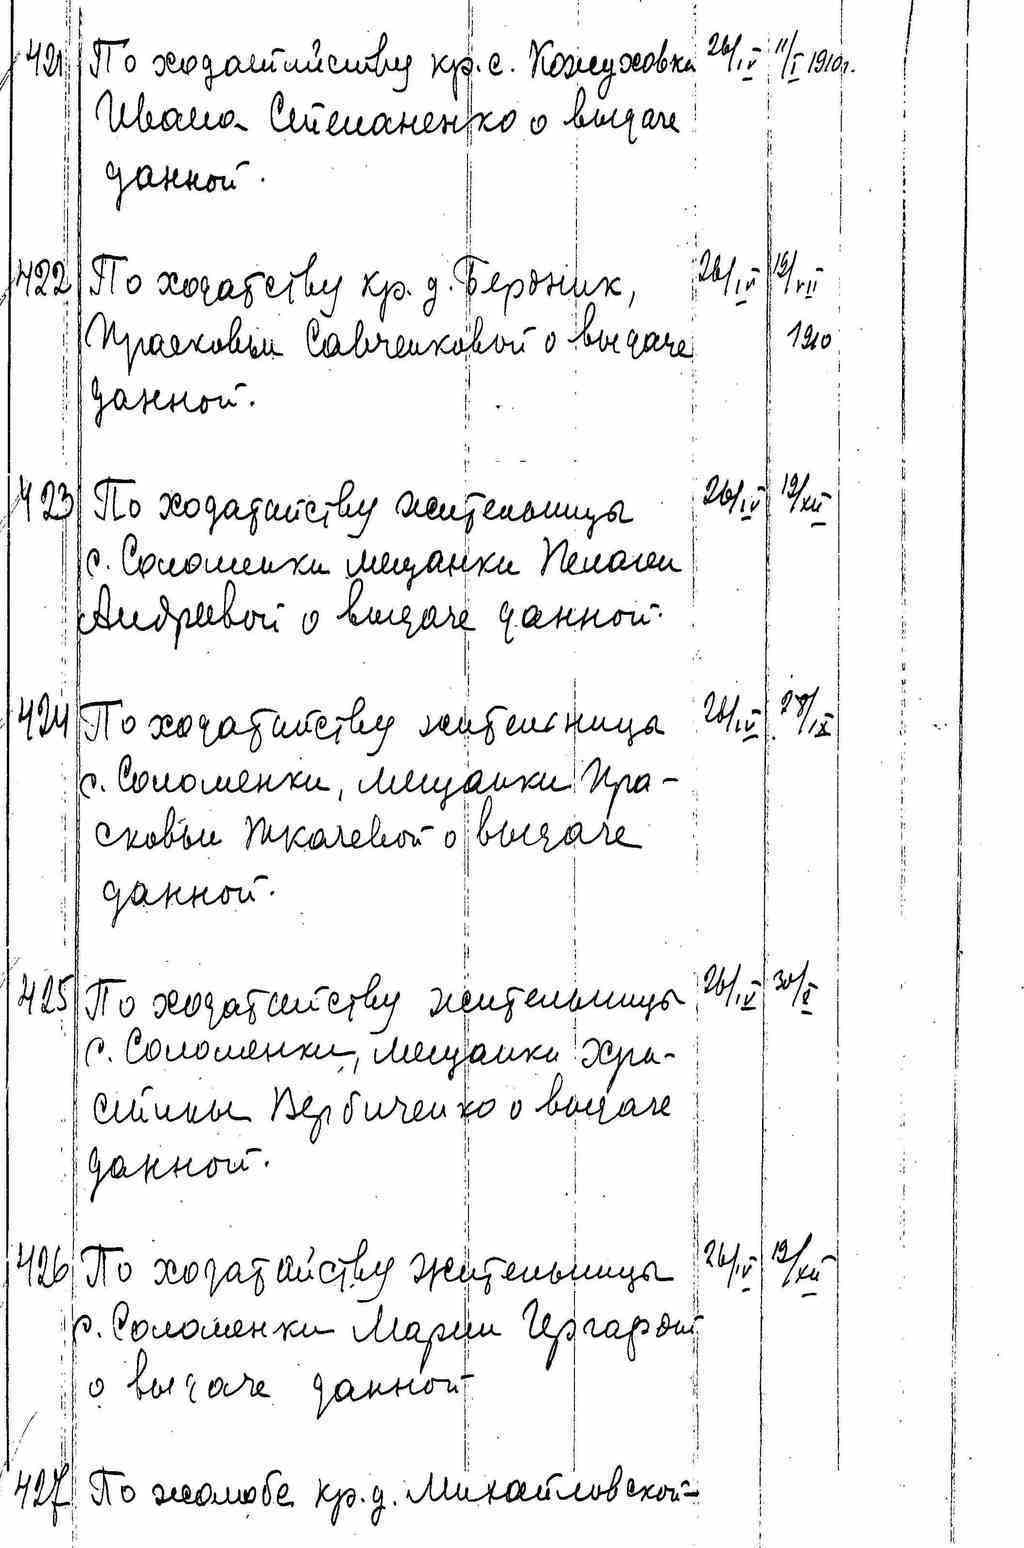 421 По ходатайству кр. с. Кожуховки 26/IV 11/I 1910г.
Ивана Степаненко о выдаче
данной.
422 По ходатству кр. д. Бердник, 26/IV 19/VII
Прасковьи Савченковой о выдаче 1910
данной.
423 По ходатайству жительницы 26/IV 19/XII
с. Соломенки мещанки Пелагеи
Андреевой о выдаче данной.
424 По ходатайству жительницы 26/IV 28/IX
с. Соломенки, мещанки Пра-
сковьи Ткачевой о выдаче
данной.
425 По ходатайству жительницы 26/IV 30/X
с. Соломенки, мещанки Хри-
стины Вербиченко о выдаче
данной.
426 По ходатайству жительницы 26/IV 19/XII
с. Соломенки Марии Гергардт
о выдаче данной
427 По жалобе кр. д. Михайловской-